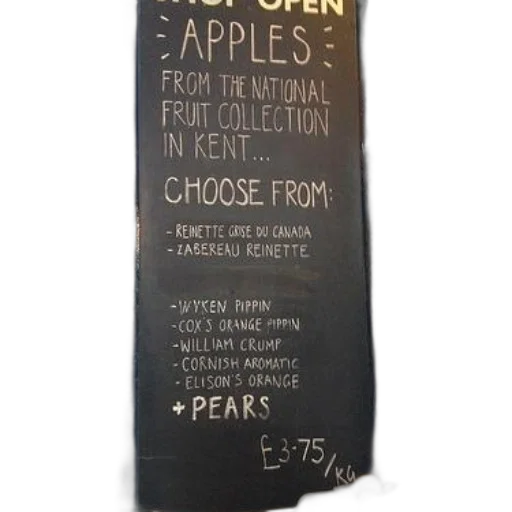 SHOP OPEN
APPLES
FROM THE NATIONAL
FRUIT COLLECTION
IN KENT...
CHOOSE FROM:
- REINETTE GRISE DU CANADA
- ZABEREAU REINETTE
- WYKEN PIPPIN
- COX'S ORANGE PIPPIN
- WILLIAM CRUMP
- CORNISH AROMATIC
- ELISON'S ORANGE
+ PEARS
£3.75/KG